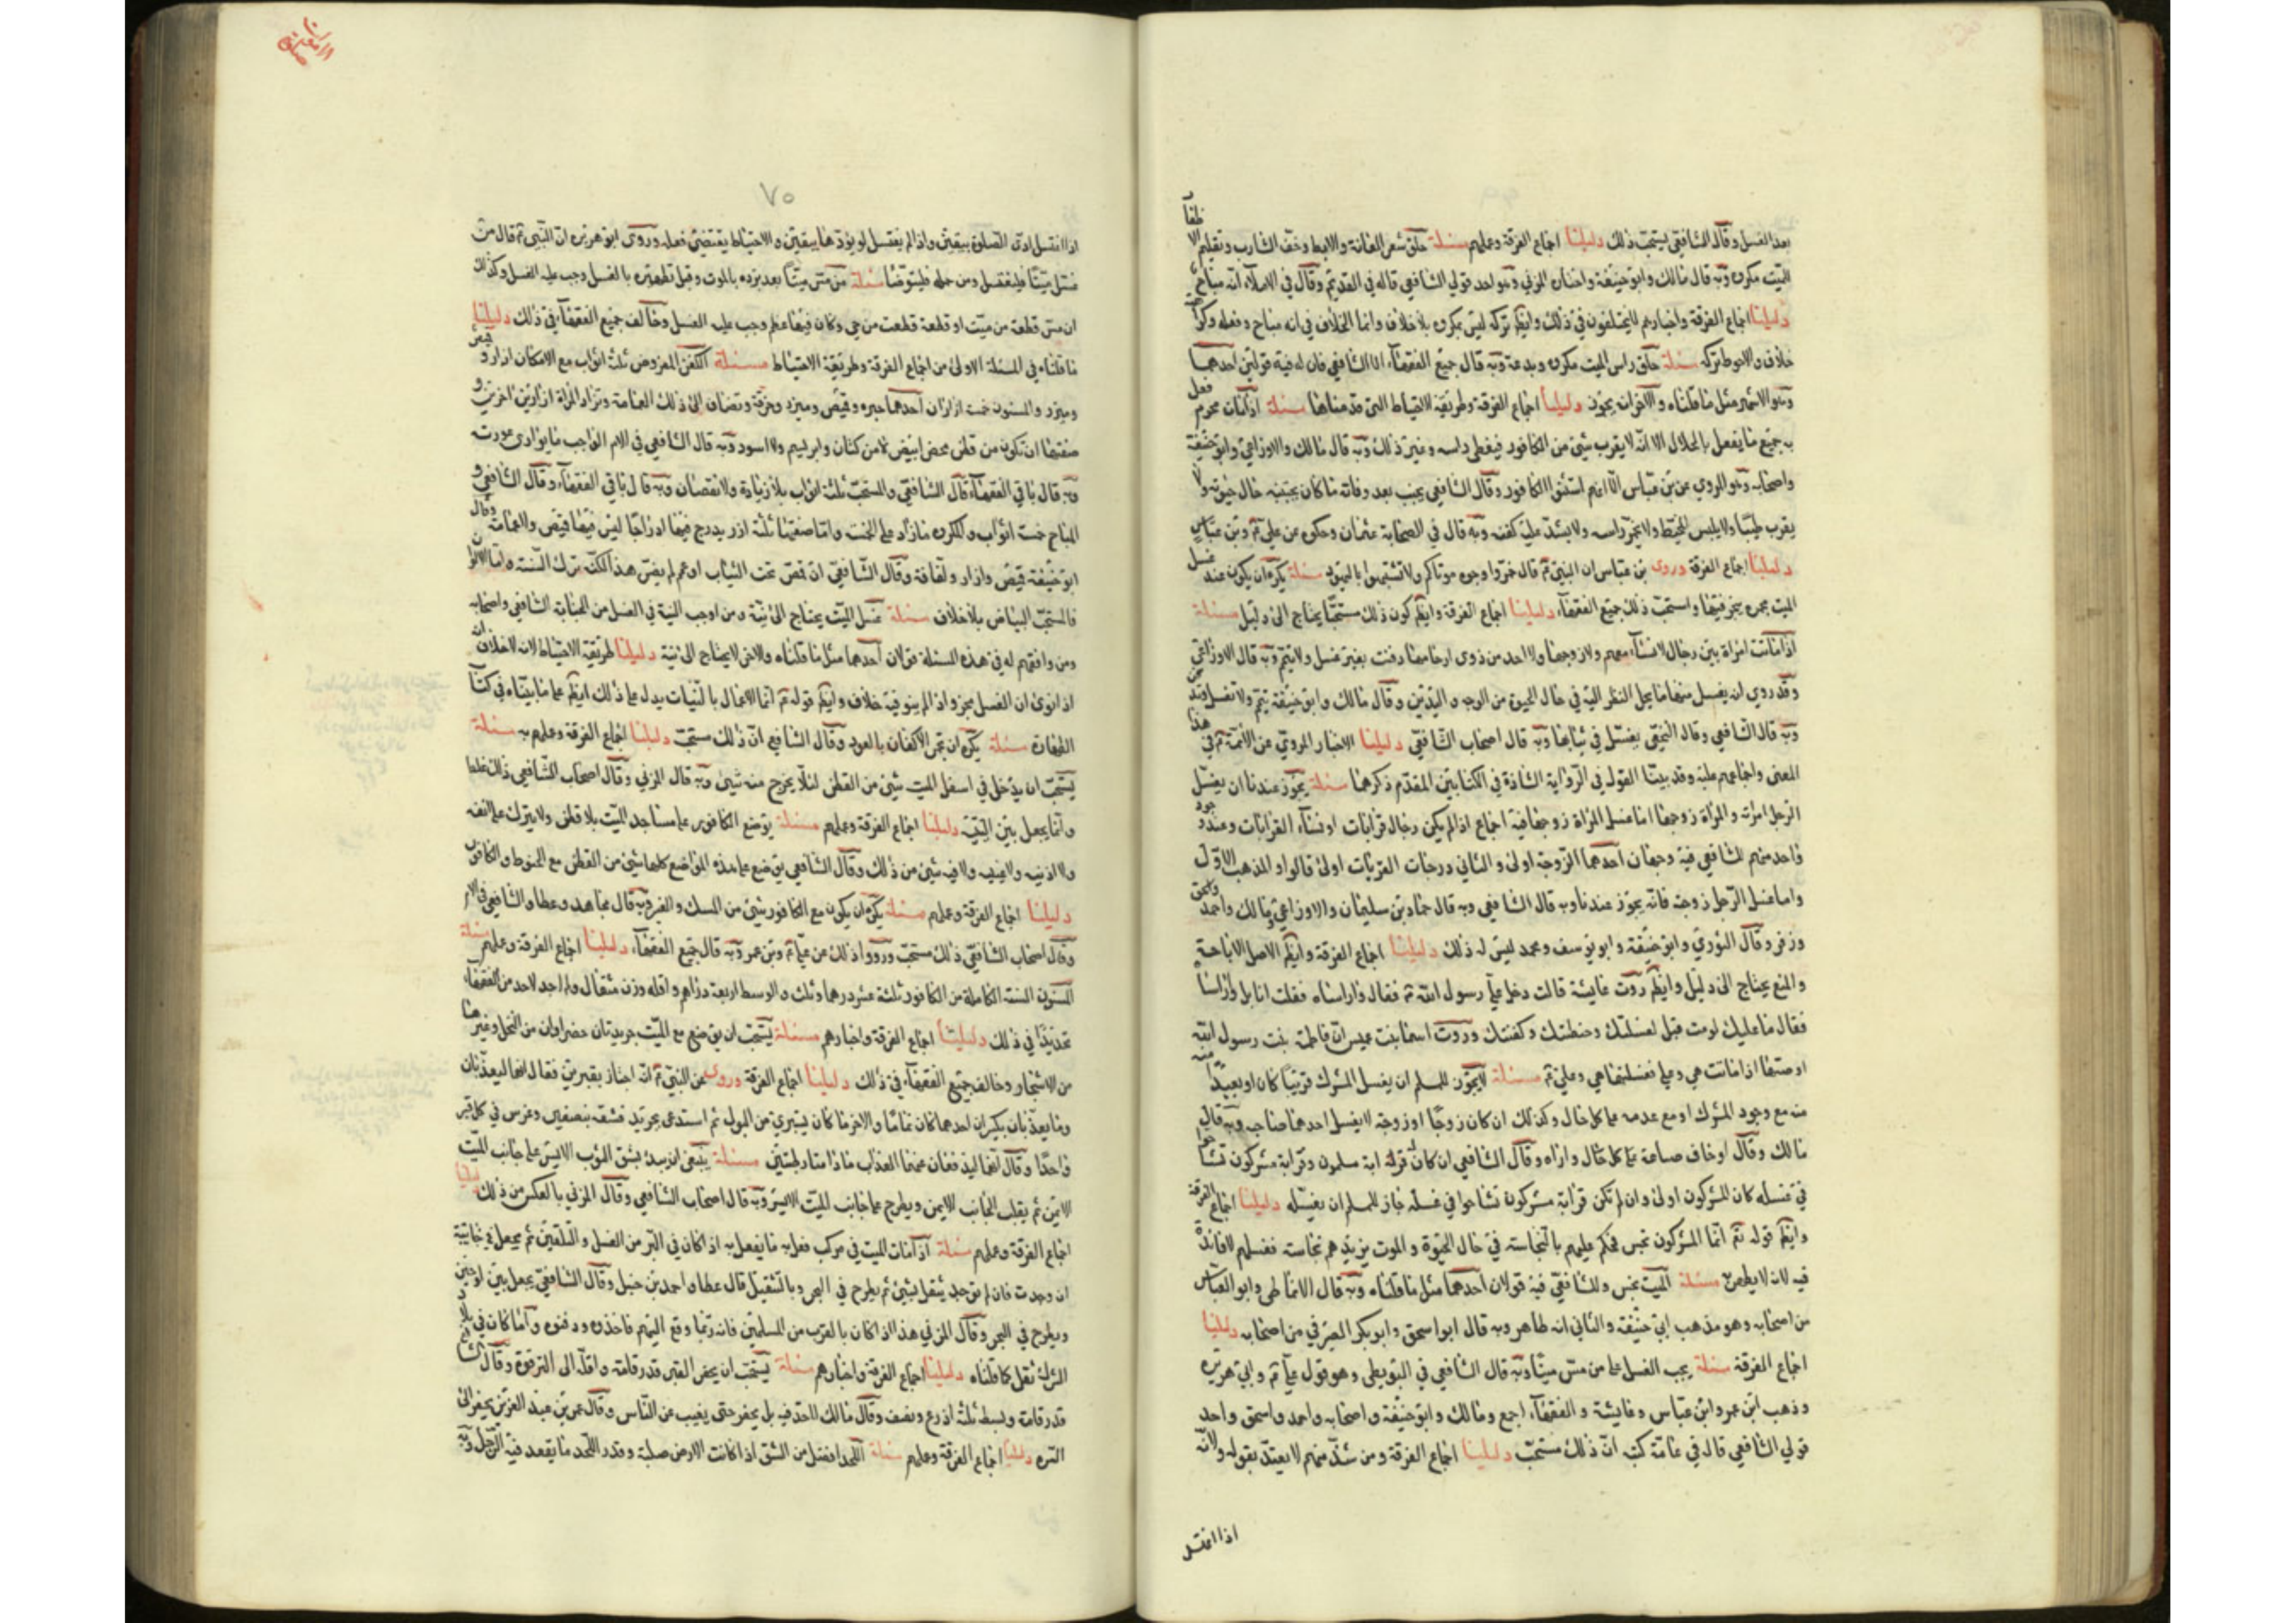 بعد الغسل وقال الشافعي يستحب ذلك دليلنا اجماع الفرقة وعملهم مسئلة حلق شعر العانة والابط وخف الشارب وتقليم الاظفار
للميت مكروه وبه قال مالك وابو حنيفة واختاره المزني وهو احد قولي الشافعي قاله في القديم وقال في الاملاء انه مباح
دليلنا اجماع الفرقة واخبارهم لا يختلفون في ذلك وايضا تركه ليس بمكروه بلا خلاف وانما الخلاف في انه مباح وفعله وكراهته
خلاف والاحوط تركه مسئلة حلق راس الميت مكروه وبدعة وبه قال جميع الفقهاء الا الشافعي فان له فيه قولين احدهما
وهو الاشهر مثل ما قلناه والاخر انه يجوز دليلنا اجماع الفرقة وطريقة الاحتياط التي قدمناها مسئلة اذا مات محرم فعل
به جميع ما يفعل بالحلال الا انه لا يقرب شيئ من الكافور فيغطى راسه وغير ذلك وبه قال مالك والاوزاعي وابو حنيفة
واصحابه وهو المروي عن بن عباس الا انهم استثنوا الكافور وقال الشافعي يجنب بعد وفاته ما كان يجتنبه حال حيوته ولا
يقرب طيبا ولا يلبس المخيط ولا يخمر راسه ولا يشد عليه كفنه وبه قال في الصحابة عثمان وحكوه عن علي ع وبن عباس
دليلنا اجماع الفرقة وروى بن عباس ان النبي ع قال خمروا وجوه موتاكم ولا تشبهوا باليهود مسئلة يكره ان يكون عند غسل
الميت مجمرة يبخر فيها واستحب ذلك جميع الفقهاء دليلنا اجماع الفرقة وايضا كون ذلك مستحبا يحتاج الى دليل مسئلة
اذا ماتت امراة بين رجال لا نساء معهم ولا زوجها ولا احد من ذوي ارحامها دفنت بغير غسل ولا تيمم وبه قال الاوزاعي
وقد روي ان يغسل منها ما يحل النظر اليه في حال الحيوة من الوجه واليدين وقال مالك وابو حنيفة تيمم ولا تغسل
وبه قال الشافعي وقال النخعي يغسل في ثيابها وبه قال اصحاب الشافعي دليلنا الاخبار المروية عن الائمة ع في هذا
المعنى واجماعهم عليه وقد بينا القول في الرواية الشاذة في الكتابين المقدم ذكرهما مسئلة يجوز عندنا ان يغسل
الرجل امراته والمراة زوجها اما غسل المراة زوجها فيه اجماع اذا لم يكن رجال قرابات او نساء القرابات وعند وجود
واحد منهم للشافعي فيه وجهان احدهما الزوجة اولى والثاني درجات القربات اولى قالوا والمذهب الاول
واما غسل الرجل زوجته فانه يجوز عندنا وبه قال الشافعي وبه قال حماد بن سليمان والاوزاعي ومالك واحمد واسحق
وزفر وقال الثوري وابو حنيفة وابو يوسف ومحمد ليس له ذلك دليلنا اجماع الفرقة وايضا الاصل الاباحة
والمنع يحتاج الى دليل وايضا روت عايشة قالت دخل علي رسول الله ع فقال واراساه فقلت انا بل واراساه
فقال ما عليك لو مت قبلي لغسلتك وحنطتك وكفنتك وروت اسما بنت عميس ان فاطمة بنت رسول الله
اوصتها اذا ماتت هي وعلي فغسلتها هي وعلي ع مسئلة لا يجوز للمسلم ان يغسل المشرك قريبا كان او بعيدا منه
منه مع وجود المشرك او مع عدمه على كل حال وكذلك ان كان زوجا او زوجة لا يغسل احدهما صاحبه وبه قال
مالك وقال او خاف ضياعه على كل حال واراه وقال الشافعي ان كان له قرابة مسلمون وقرابة مشركون تشاحوا
في غسله كان المشركون اولى وان لم تكن قرابة مشركون تشاحوا في غسله جاز للمسلم ان يغسله دليلنا اجماع الفرقة
وايضا قوله تع انما المشركون نجس فحكم عليهم بالنجاسة في حال الحيوة والموت يزيدهم نجاسة فغسلهم لا فائدة
فيه لانه لا يطهره مسئلة الميت نجس وللشافعي فيه قولان احدهما مثل ما قلناه وبه قال الانماطي وابو العباس
من اصحابه وهو مذهب ابي حنيفة والثاني انه طاهر وبه قال ابو اسحق وابو بكر الصيرفي من اصحابه دليلنا
اجماع الفرقة مسئلة يجب الغسل على من مس ميتا وبه قال الشافعي في البويطي وهو قول علي ع وابي هريرة
وذهب ابن عمر وابن عباس وعايشة والفقهاء اجمع ومالك وابو حنيفة واصحابه واحمد واسحق واحد
قولي الشافعي قال في عامة كتبه ان ذلك مستحب دليلنا اجماع الفرقة ومن شذ منهم لا يعتد بقوله ولانه
اذا اغتسل
٧٥
اذا اغتسل ادى الصلوة بيقين واذا لم يغتسل لم يؤدها بيقين والاحتياط يقتضي فعله وروى ابو هريرة ان النبي ع قال من
غسل ميتا فليغتسل ومن حمله فليتوضا مسئلة من مس ميتا بعد برده بالموت وقبل تطهيره بالغسل وجب عليه الغسل وكذلك
ان مس قطعة من ميت او قطعة قطعت من حي وكان فيها عظم وجب عليه الغسل وخالف جميع الفقهاء في ذلك دليلنا
ما قلناه في المسئلة الاولى من اجماع الفرقة وطريقة الاحتياط مسئلة الكفن المفروض ثلثة اثواب مع الامكان ازار وقميص
وميزر والمسنون خمسة ازاران احدهما حبره وقميص وميزر وخرقة وتضاف الى ذلك العمامة وتزاد المراة ازارين اخرين و
صفتها ان تكون من قطن محض ابيض لا من كتان وابريسم ولا اسود وبه قال الشافعي في الام الواجب ما يوارى عورته
وبه قال باقي الفقهاء وقال الشافعي والمستحب ثلثة اثواب بلا زيادة ولا نقصان وبه قال باقي الفقهاء وقال الشافعي و
المباح خمسة اثواب والمكروه ما زاد على الخمسة واما صفتها ثلثة ازر يدرج فيها ادراجا ليس فيها قميص ولا عمامة وقال
ابو حنيفة قميص وازار ولفافة وقال الشافعي ان قمص تحت الثياب او عمم لم يضر هذا لكنه ترك السنة واما الالوان
فالمستحب البياض بلا خلاف مسئلة غسل الميت يحتاج الى نية ومن اوجب النية في الغسل من الجنابة الشافعي واصحابه
ومن وافقهم له في هذه المسئلة قولان احدهما مثل ما قلناه والاخر لا يحتاج الى نية دليلنا طريقة الاحتياط لانه لا خلاف انه
اذا نوى ان الغسل مجز واذا لم ينو فيه خلاف وايضا قوله ع انما الاعمال بالنيات يدل على ذلك ايضا على ما بيناه في كتاب
الطهارة مسئلة يكره ان تجمر الاكفان بالعود وقال الشافعي ان ذلك مستحب دليلنا اجماع الفرقة وعملهم به مسئلة
يستحب ان يدخل في اسفل الميت شيئ من القطن لئلا يخرج منه شيئ وبه قال المزني وقال اصحاب الشافعي ذلك غلط
وانما يجعل بين اليتيه دليلنا اجماع الفرقة وعملهم مسئلة يوضع الكافور على مساجد الميت بلا قطن ولا يترك على انفه
ولا اذنيه ولا عينيه ولا فيه شيئ من ذلك وقال الشافعي يوضع على هذه المواضع كلها شيئ من القطن مع الحنوط والكافور
دليلنا اجماع الفرقة وعملهم مسئلة يكره ان يكون مع الكافور شيئ من المسك والعنبر وبه قال مجاهد وعطا والشافعي في الام
وقال اصحاب الشافعي ذلك مستحب ورووا ذلك عن علي ع وبن عمر وبه قال جميع الفقهاء دليلنا اجماع الفرقة وعملهم مسئلة
المسنون السنة الكاملة من الكافور ثلثة عشر درهما وثلث والوسط اربعة دراهم واقله وزن مثقال ولم اجد لاحد من الفقهاء
تحديدا في ذلك دليلنا اجماع الفرقة واخبارهم مسئلة يستحب ان يوضع مع الميت جريدتان خضراوان من النخل وغيرها
من الاشجار وخالف جميع الفقهاء في ذلك دليلنا اجماع الفرقة وروى عن النبي ع انه اجتاز بقبرين فقال انهما ليعذبان
وما يعذبان بكبير ان احدهما كان نماما والاخر ما كان يستبري من البول ثم استدعى بجريدة فشقه بنصفين وغرس في كل قبر
واحدا وقال انهما ليدفعان عنهما العذاب ما دامتا رطبتين مسئلة ينبغى ان يبدء بشق الثوب الايسر على جانب الميت
الايمن ثم يقلب الجانب الايمن ويطرح على جانب الميت الايسر وبه قال اصحاب الشافعي وقال المزني بالعكس من ذلك دليلنا
اجماع الفرقة وعملهم مسئلة اذا مات الميت في مركب فعل به ما يفعل به اذا كان في البر من الغسل والتلقين ثم يجعل في خابية
ان وجدت فان لم توجد يثقل بشيئ ثم يطرح في البحر وبالتثقيل قال عطا واحمد بن حنبل وقال الشافعي يجعل بين لوحين
ويطرح في البحر وقال المزني هذا اذا كان بالقرب من المسلمين فانه ربما وقع اليهم فاخذوه ودفنوه واما كان في بلاد
الشرك ثقل كما قلناه دليلنا اجماع الفرقة واخبارهم مسئلة يستحب ان يحفر القبر قدر قامة واقله الى الترقوة وقال الشافعي
قدر قامة وبسطة ثلثة اذرع ونصف وقال مالك لا حد فيه بل يحفر حتى يغيب عن الناس وقال عمر بن عبد العزيز يحفر الى
السره دليلنا اجماع الفرقة وعملهم مسئلة اللحد افضل من الشق اذا كانت الارض صلبة وقدر اللحد ما يقعد فيه الرجل وبه